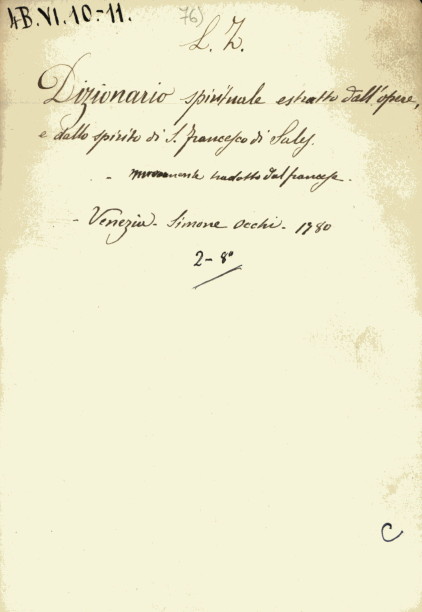 4B.VI.10.-11. 76)
L. Z.
Dizionario spirituale estratto dall'opere,
e dallo spirito di S. Francesco di Sales.
- nuovamente tradotto dal francese.
- Venezia - Simone Occhi - 1780
2 - 8°
C